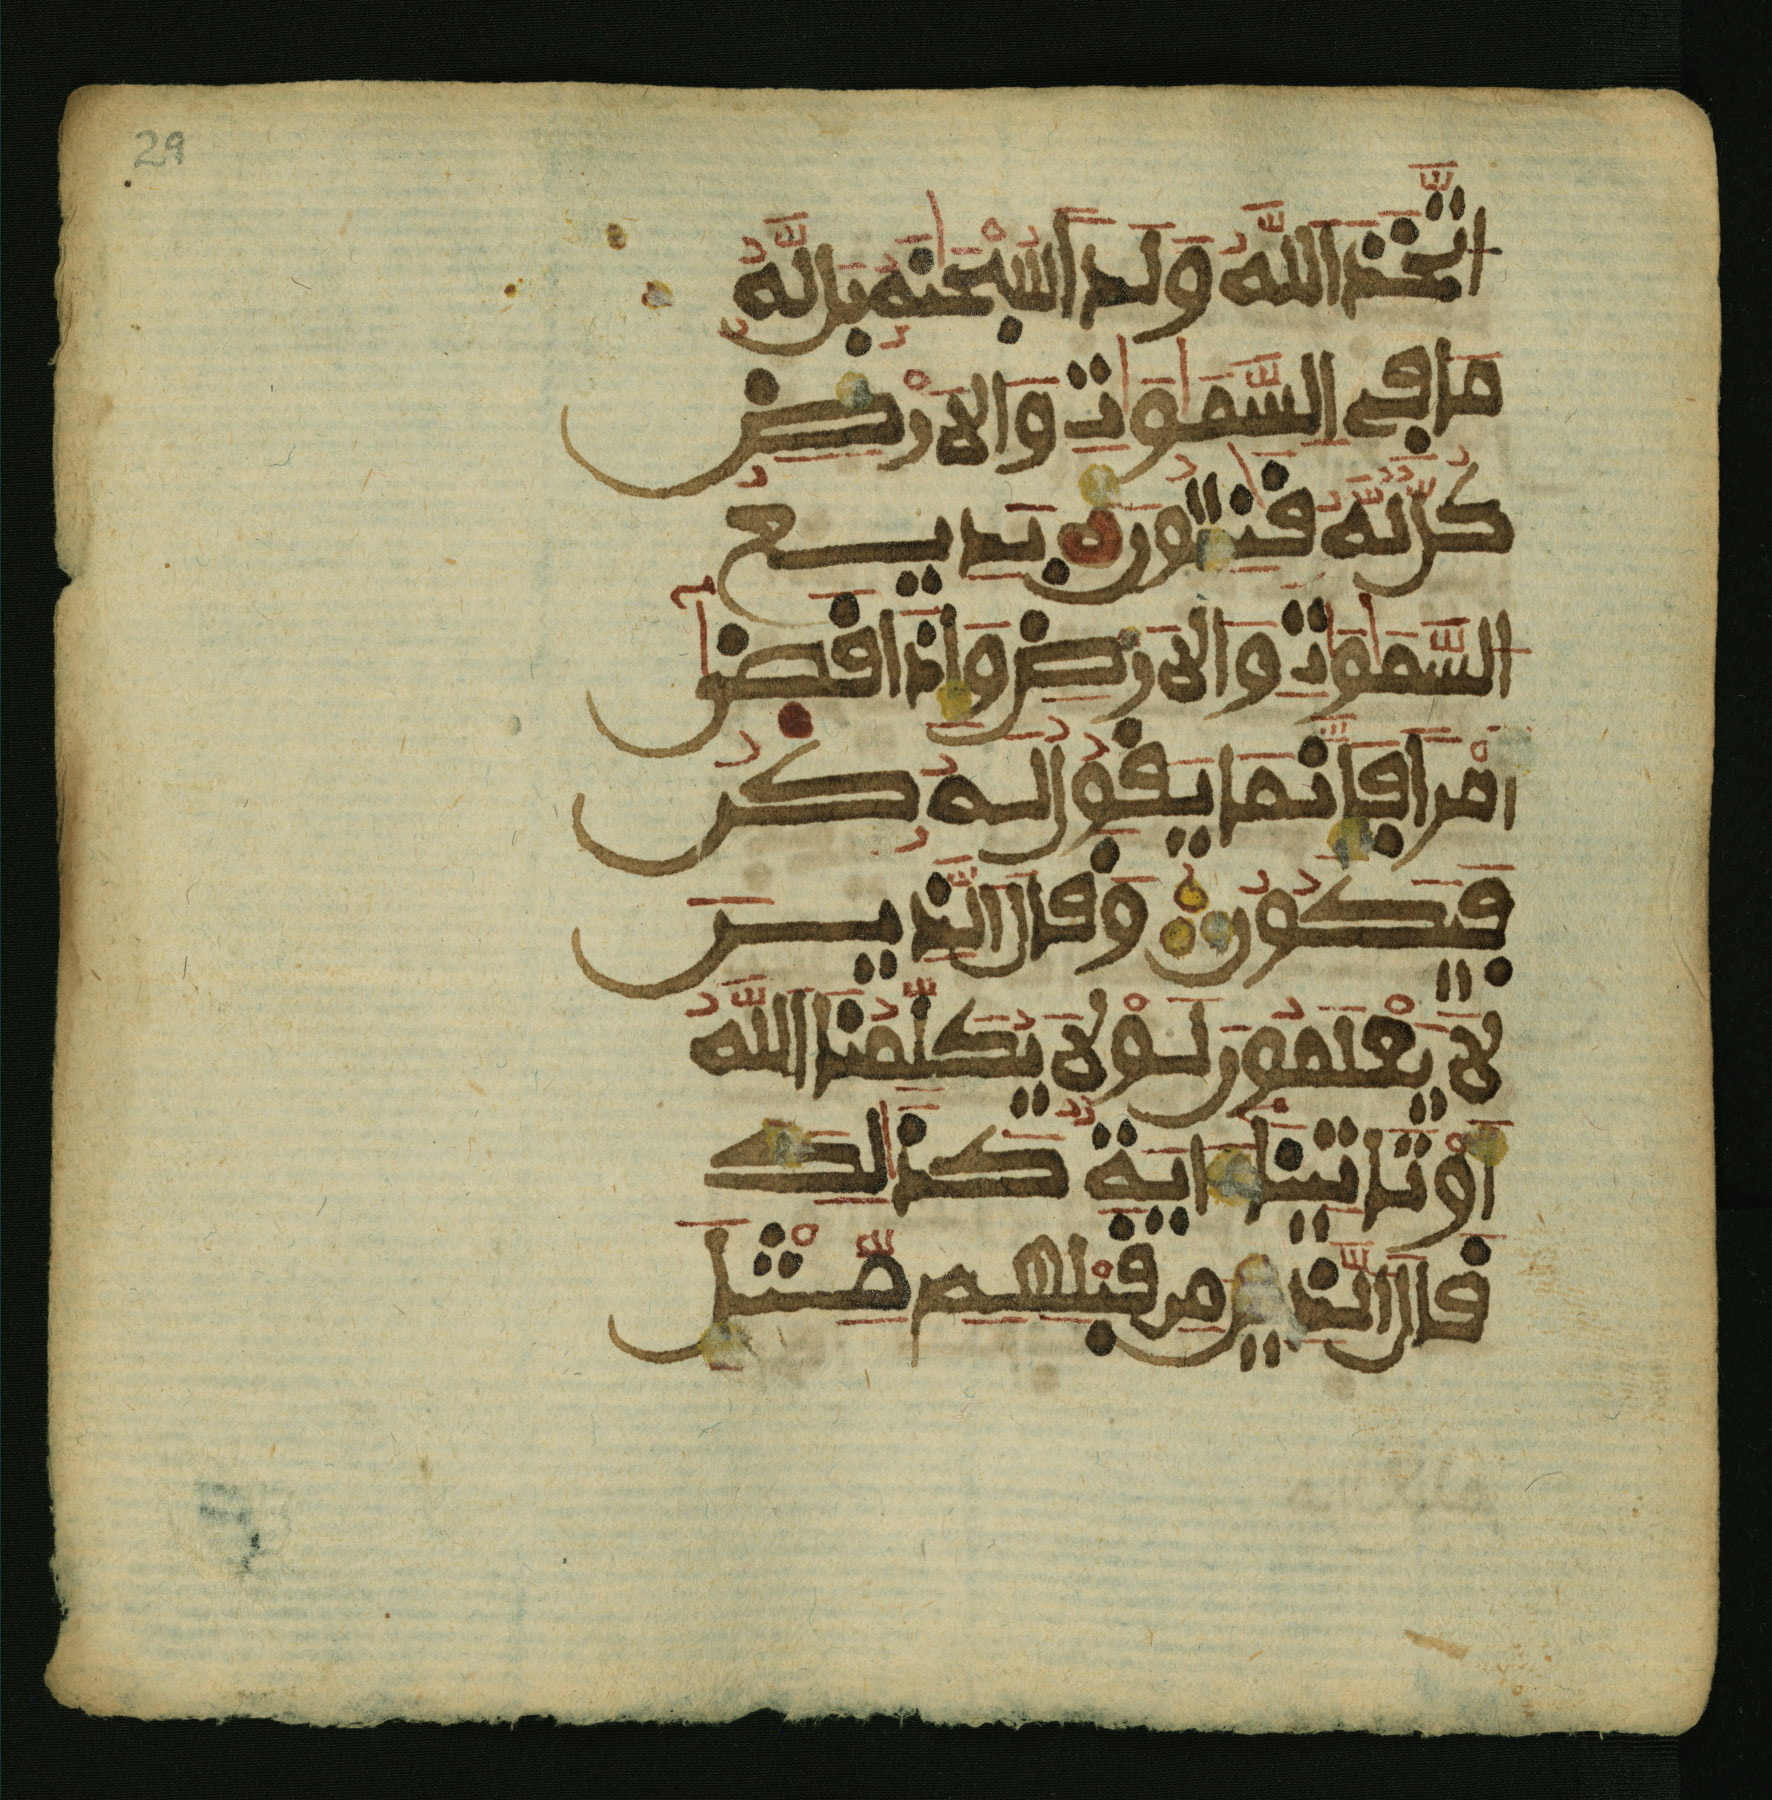 29
اتَّخَذَ اللَّهُ وَلَدًا سُبْحَٰنَهُ بَل لَّهُ
مَا فِي السَّمَٰوَٰتِ وَالَارْضِ
كُلٌّ لَّهُ قَٰنِتُونَ بَدِيعُ
السَّمَٰوَٰتِ وَالَارْضِ وَإِذَا قَضَىٰ
أَمْرًا فَإِنَّمَا يَقُولُ لَهُ كُن
فَيَكُونُ وَقَالَ الَّذِينَ
لَا يَعْلَمُونَ لَوْلَا يُكَلِّمُنَا اللَّهُ
أَوْ تَاتِينَا ءَايَةٌ كَذَٰلِكَ
قَالَ الَّذِينَ مِن قَبْلِهِم مِّثْلَ